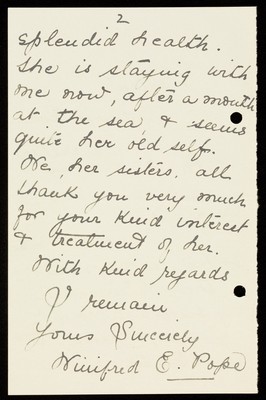 2
splendid health.
She is staying with
me now, after a month
at the sea, & seems
quite her old self.
We, her sisters, all
thank you very much
for your kind interest
& treatment of her.
With kind regards
I remain
Yours Sincerely
Winifred E. Pope